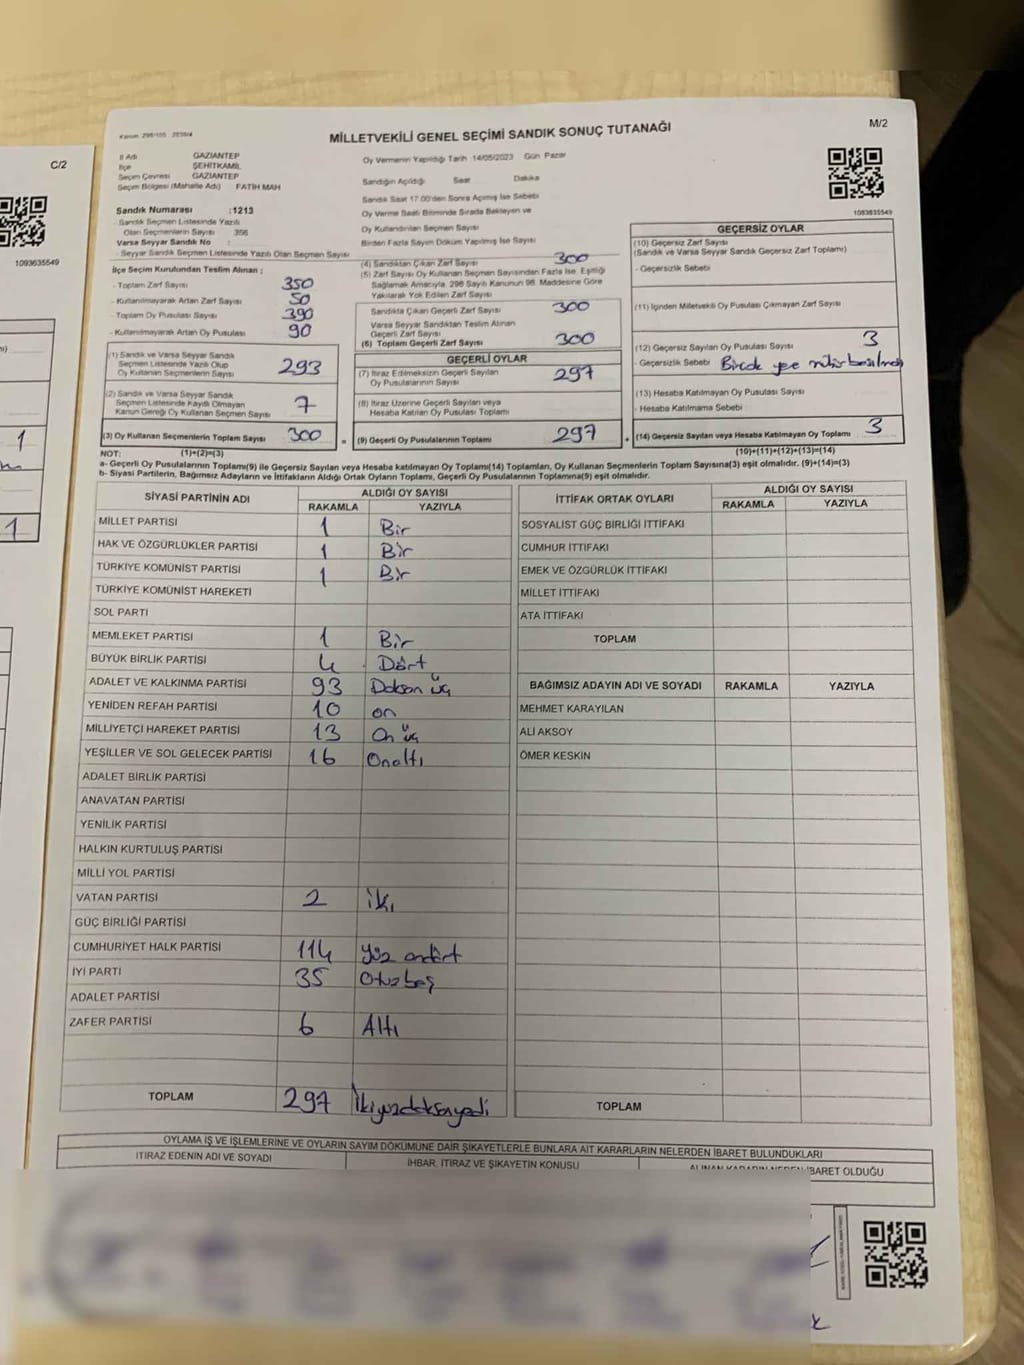 C/2
1093635549
MİLLETVEKİLİ GENEL SEÇİMİ SANDIK SONUÇ TUTANAĞI
M/2
1093635549
İl Adı GAZİANTEP
İlçe ŞEHİTKAMİL
Seçim Çevresi GAZİANTEP
Seçim Bölgesi (Mahalle Adı) FATİH MAH
Sandık Numarası :1213
Sandık Seçmen Listesinde Yazılı
Olan Seçmenlerin Sayısı 356
Varsa Seyyar Sandık No :
Seyyar Sandık Seçmen Listesinde Yazılı Olan Seçmen Sayısı
İlçe Seçim Kurulundan Teslim Alınan ;
- Toplam Zarf Sayısı 350
- Kullanılmayarak Artan Zarf Sayısı 50
- Toplam Oy Pusulası Sayısı 390
- Kullanılmayarak Artan Oy Pusulası 90
(1) Sandık ve Varsa Seyyar Sandık
Seçmen Listesinde Yazılı Olup
Oy Kullanan Seçmenlerin Sayısı 293
(2) Sandık ve Varsa Seyyar Sandık
Seçmen Listesinde Kayıtlı Olmayan
Kanun Gereği Oy Kullanan Seçmen Sayısı 7
(3) Oy Kullanan Seçmenlerin Toplam Sayısı 300 =
Oy Vermenin Yapıldığı Tarih 14/05/2023 Gün Pazar
Sandığın Açıldığı Saat Dakika
Sandık Saat 17.00'den Sonra Açılmış İse Sebebi
Oy Verme Saati Bitiminde Sırada Bekleyen ve
Oy Kullandırılan Seçmen Sayısı
Birden Fazla Sayım Döküm Yapılmış İse Sayısı
(4) Sandıktan Çıkan Zarf Sayısı 300
(5) Zarf Sayısı Oy Kullanan Seçmen Sayısından Fazla İse, Eşitliği
Sağlamak Amacıyla, 298 Sayılı Kanunun 98. Maddesine Göre
Yakılarak Yok Edilen Zarf Sayısı
Sandıkta Çıkan Geçerli Zarf Sayısı 300
Varsa Seyyar Sandıktan Teslim Alınan
Geçerli Zarf Sayısı
(6) Toplam Geçerli Zarf Sayısı 300
GEÇERLİ OYLAR
(7) İtiraz Edilmeksizin Geçerli Sayılan
Oy Pusulalarının Sayısı 297
(8) İtiraz Üzerine Geçerli Sayılan veya
Hesaba Katılan Oy Pusulası Toplamı
(9) Geçerli Oy Pusulalarının Toplamı 297 +
GEÇERSİZ OYLAR
(10) Geçersiz Zarf Sayısı
(Sandık ve Varsa Seyyar Sandık Geçersiz Zarf Toplamı)
- Geçersizlik Sebebi
(11) İçinden Milletvekili Oy Pusulası Çıkmayan Zarf Sayısı
(12) Geçersiz Sayılan Oy Pusulası Sayısı 3
- Geçersizlik Sebebi
(13) Hesaba Katılmayan Oy Pusulası Sayısı
- Hesaba Katılmama Sebebi
(14) Geçersiz Sayılan veya Hesaba Katılmayan Oy Toplamı 3
NOT: (1)+(2)=(3) (10)+(11)+(12)+(13)=(14)
a- Geçerli Oy Pusulalarının Toplamı(9) ile Geçersiz Sayılan veya Hesaba katılmayan Oy Toplamı(14) Toplamları, Oy Kullanan Seçmenlerin Toplam Sayısına(3) eşit olmalıdır. (9)+(14)=(3)
b- Siyasi Partilerin, Bağımsız Adayların ve İttifakların Aldığı Ortak Oyların Toplamı, Geçerli Oy Pusulalarının Toplamına(9) eşit olmalıdır.
SİYASİ PARTİNİN ADI ALDIĞI OY SAYISI
RAKAMLA YAZIYLA
MİLLET PARTİSİ 1 Bir
HAK VE ÖZGÜRLÜKLER PARTİSİ 1 Bir
TÜRKİYE KOMÜNİST PARTİSİ 1 Bir
TÜRKİYE KOMÜNİST HAREKETİ
SOL PARTİ
MEMLEKET PARTİSİ 1 Bir
BÜYÜK BİRLİK PARTİSİ 4 Dört
ADALET VE KALKINMA PARTİSİ 93 Doksan üç
YENİDEN REFAH PARTİSİ 10 on
MİLLİYETÇİ HAREKET PARTİSİ 13 On üç
YEŞİLLER VE SOL GELECEK PARTİSİ 16 Onaltı
ADALET BİRLİK PARTİSİ
ANAVATAN PARTİSİ
YENİLİK PARTİSİ
HALKIN KURTULUŞ PARTİSİ
MİLLİ YOL PARTİSİ
VATAN PARTİSİ 2 iki
GÜÇ BİRLİĞİ PARTİSİ
CUMHURİYET HALK PARTİSİ 114 yüz ondört
İYİ PARTİ 35 Otuzbeş
ADALET PARTİSİ
ZAFER PARTİSİ 6 Altı
TOPLAM 297 İkiyüzdoksanyedi
İTTİFAK ORTAK OYLARI ALDIĞI OY SAYISI
RAKAMLA YAZIYLA
SOSYALİST GÜÇ BİRLİĞİ İTTİFAKI
CUMHUR İTTİFAKI
EMEK VE ÖZGÜRLÜK İTTİFAKI
MİLLET İTTİFAKI
ATA İTTİFAKI
TOPLAM
BAĞIMSIZ ADAYIN ADI VE SOYADI RAKAMLA YAZIYLA
MEHMET KARAYILAN
ALİ AKSOY
ÖMER KESKİN
TOPLAM
OYLAMA İŞ VE İŞLEMLERİNE VE OYLARIN SAYIM DÖKÜMÜNE DAİR ŞİKAYETLERLE BUNLARA AİT KARARLARIN NELERDEN İBARET BULUNDUKLARI
İTİRAZ EDENİN ADI VE SOYADI İHBAR, İTİRAZ VE ŞİKAYETİN KONUSU